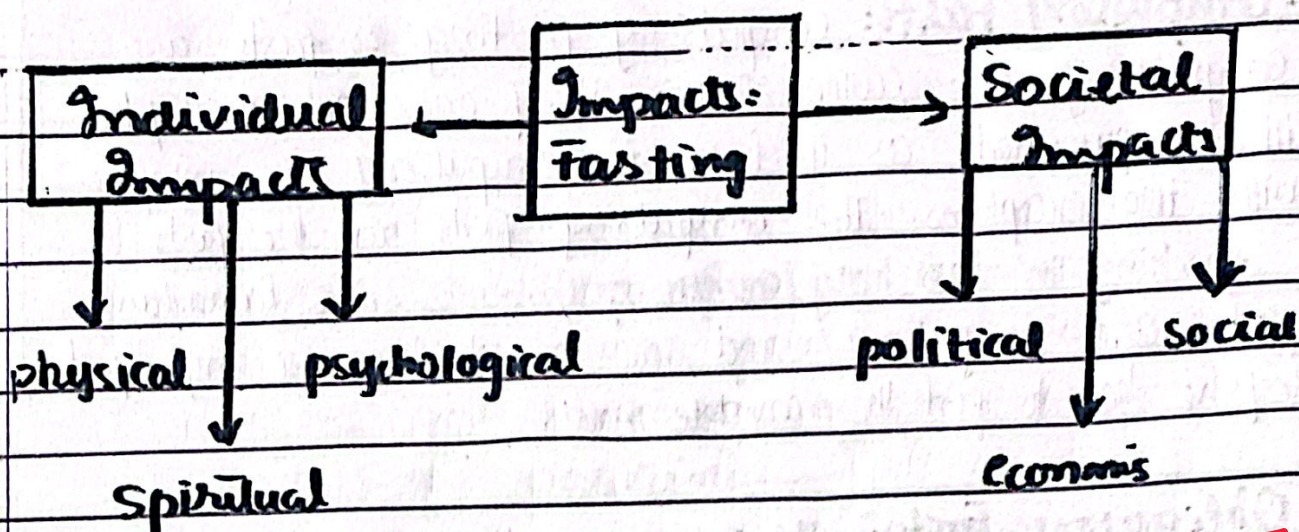 Individual
Impacts
Impacts:
Fasting
Societal
Impacts
physical
psychological
Spiritual
political
social
economis